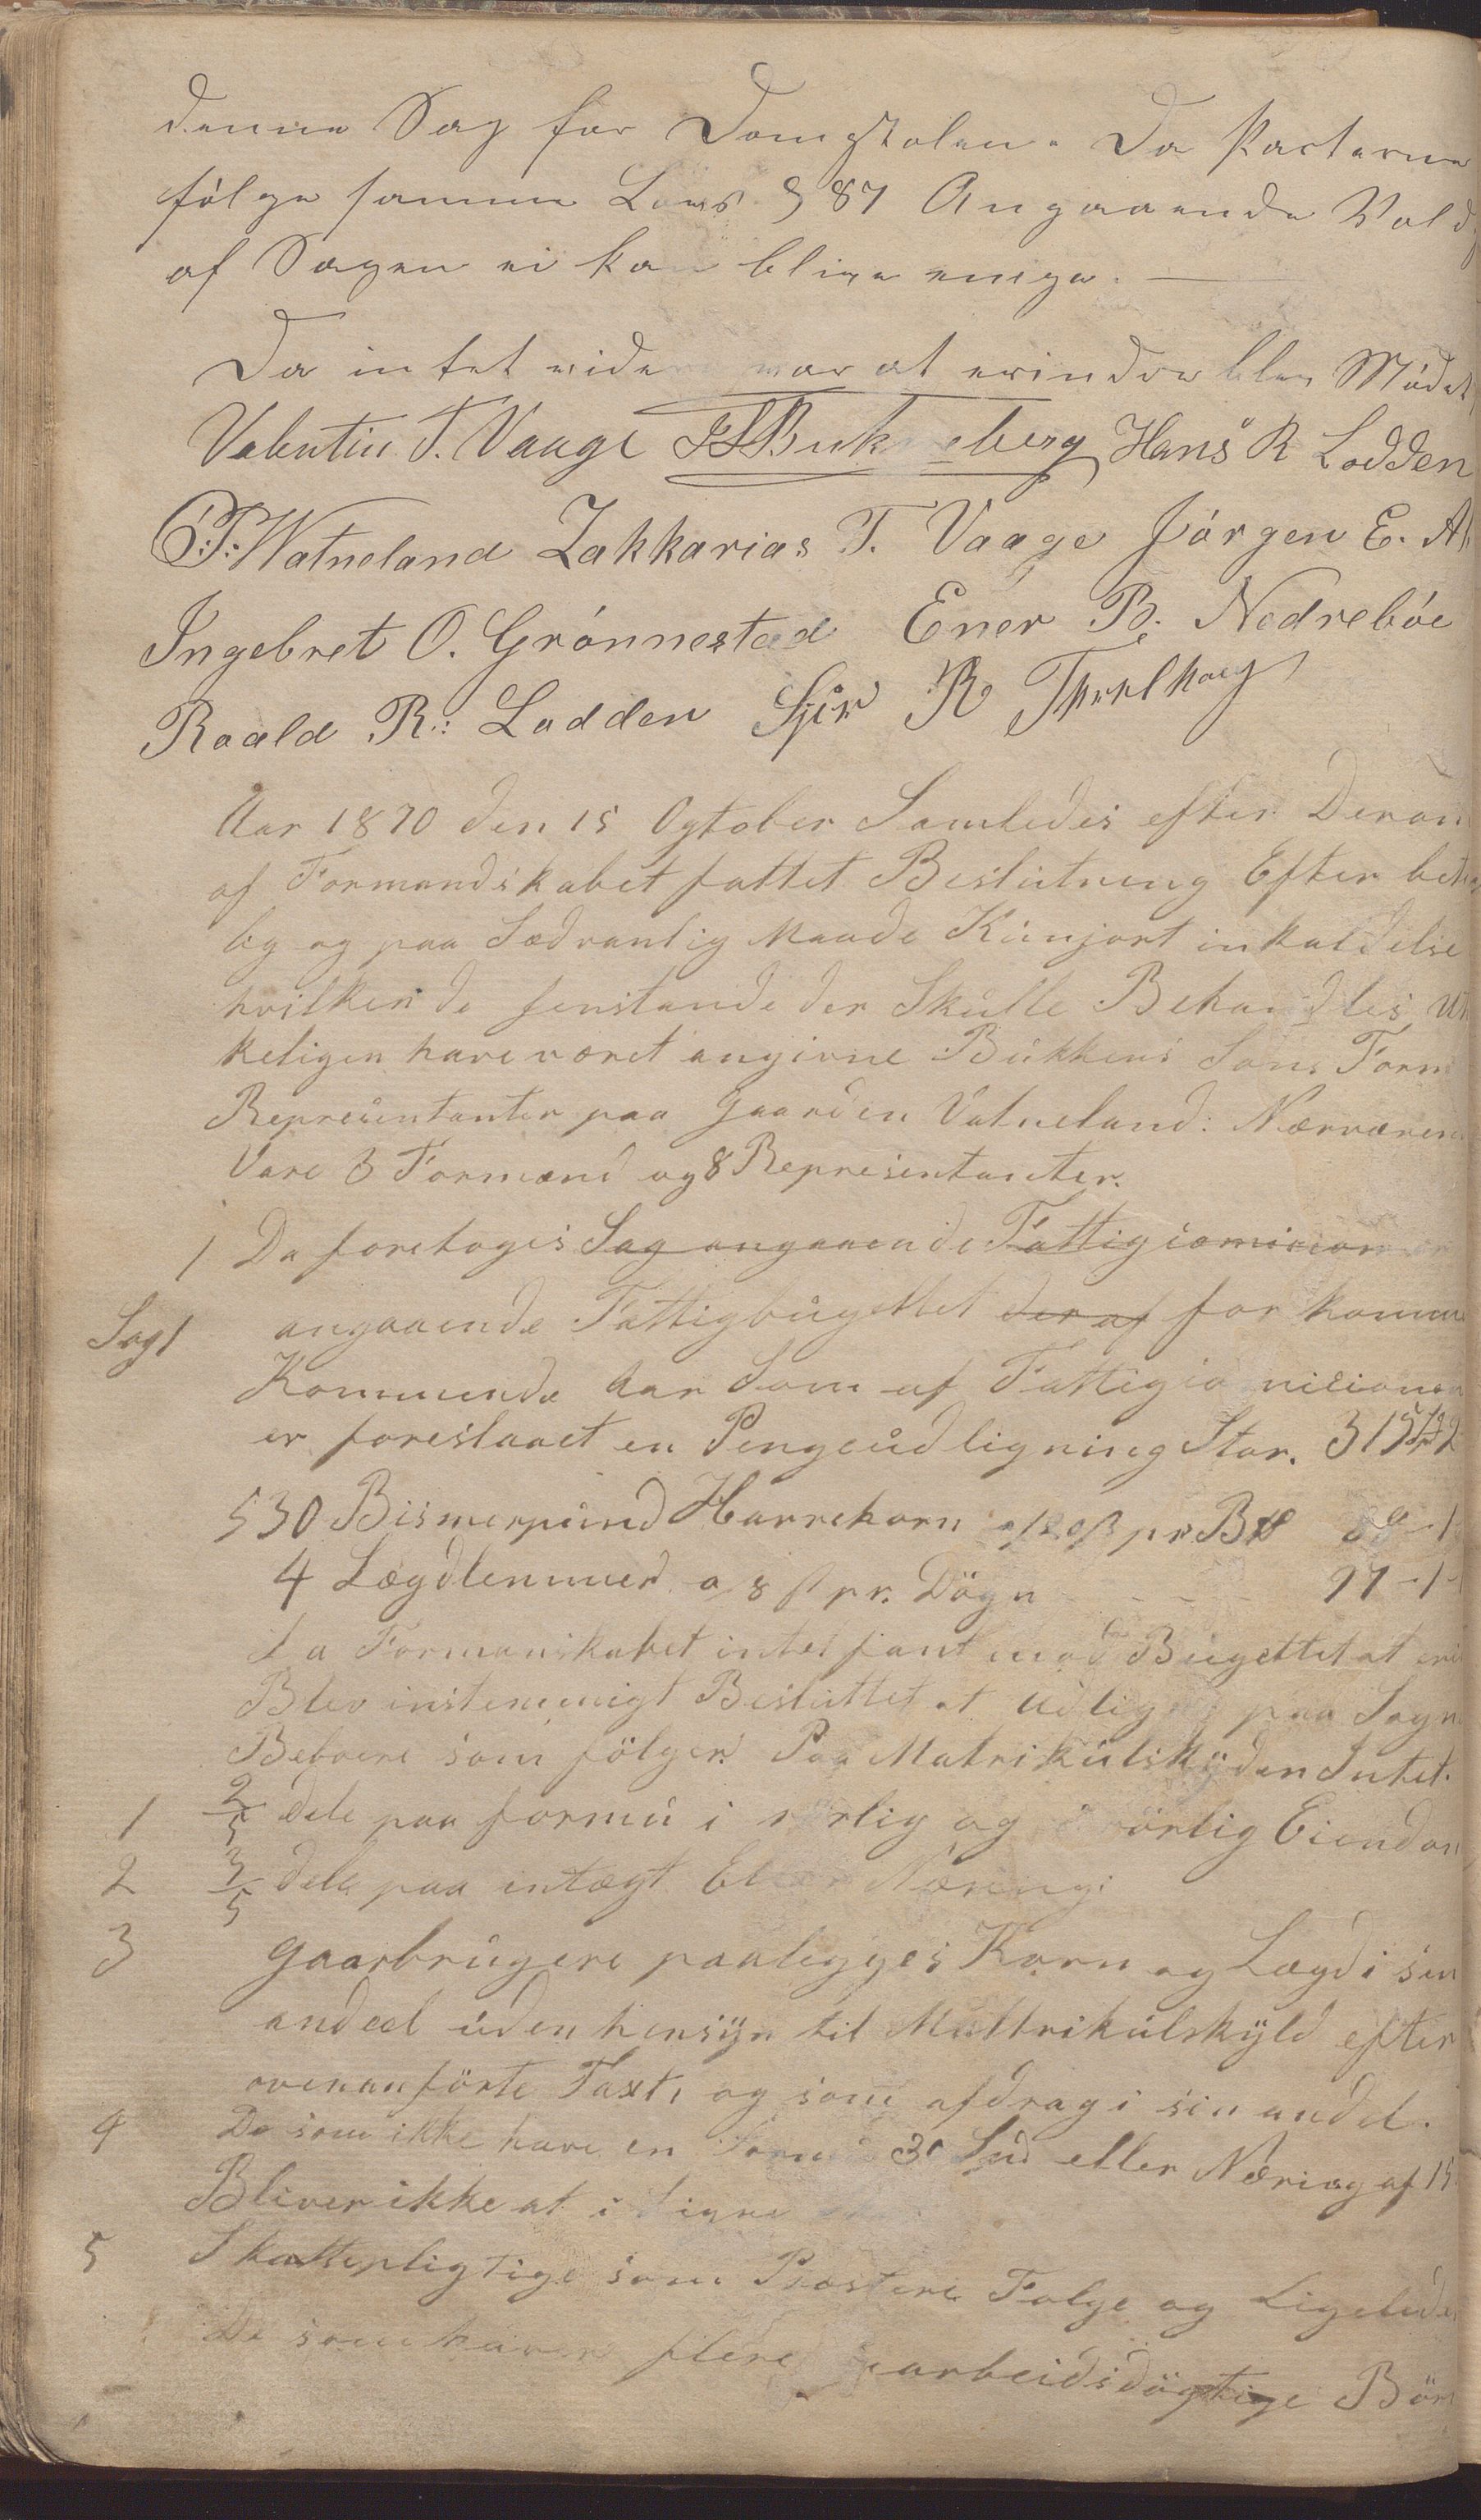 denne Sag for Domstolen. Da Parterne
fölge samme Lovs § 87 Angaaende Vold
af Sagen ei kan blive enige. —
Da intet videre var at erindre blev Mödet
Valentin T. Vaage Hans R Lodden
Watneland Zakkarias T. Vaage Jörgen E.
Ingebret O. Grönnestad Ener B. Nedreböe
Roald R. Lodden R
Aar 1870 den 15 Ogtober Samledes efter
af Formandskabet fattet Beslutning Efter
og paa Sædvanlig Maade Kunjort inkaldelse
hvilken de Jenstande der Skulle Behandles
keligen have været angivne Sons
Representanter paa Gaarden Vatneland: Nærværen
Vare 3 Formænd og 8 Representanter.
1 Da foretoges Sag angaaende Fattigiomision
Sag 1 angaaende Fattigbugettet deraf for komme
Kommende Aar Som af
er foreslaaet en Pengeudligning Stor. 315
530 Bismerpund Havrekorn pr B
4 Lægdlemmer a 8 ß pr. Dögn - - - 97 - 1 -
Da Formanskabet intet fant mod Bugettet at
Blev instemmigt Besluttet at Udligne paa Sogn
Beboere som fölger. Paa Matrikulskylden Intet.
1 2/5 dele paa formu i rörlig og urörlig Eiendom
2 3/5 dele paa intægt Eller Næring.
3 Gaarbrugere paalegges Korn og Lægd i sin
andeel uden hensyn til Mattrikulskyld efter
ovenanförte Taxt, og som afdrag i sin andel.
4 De som ikke have en 30 Spd eller Næring af 15
Bliver ikke at
5 Skattepligtige som Præstere Folge og Ligeledes
De som haver flere arbeidsdögtige Börn